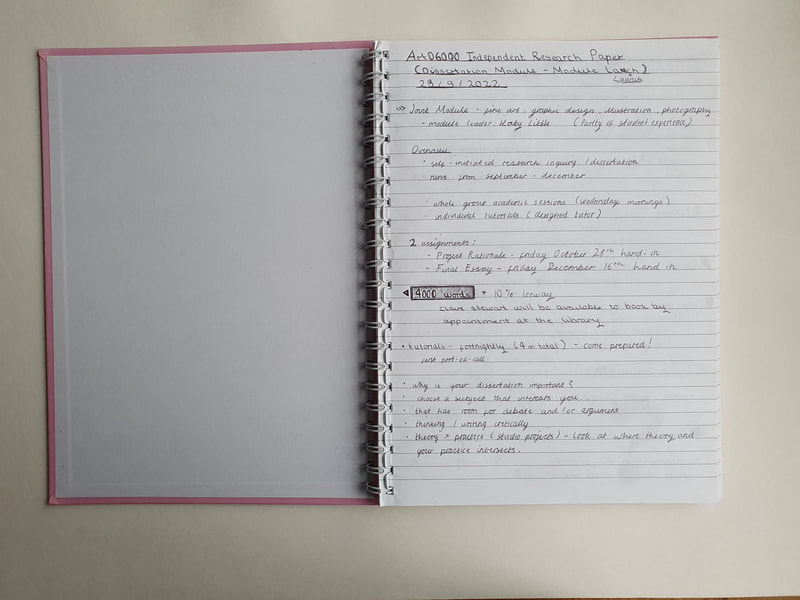 ArtD6000 Independent Research Paper
(Dissertation Module - Module Launch)
Launch
29/9/2022
>>> Joint Module - fine art, graphic design, illustration, photography
- module leader: Katy (Parity of student experience)
Overview
• self-initiated research inquiry /dissertation
• runs from september - december
• whole group academic sessions (wednesday mornings)
• individual tutorials (designed tutor)
2 assignments:
- Project Rationale - friday October 28th hand-in
- Final Essay - friday December 16th hand in
4000 words + 10% leeway
Clare Stewart will be available to book by
appointment at the library
• tutorials - fortnightly (4 in total) - come prepared!
first port-of-call
• why is your dissertation important?
• choose a subject that interests you.
• that has room for debate and/or argument
• thinking / writing critically
• theory > practice (studio projects) - look at where theory and
your practice intersects.